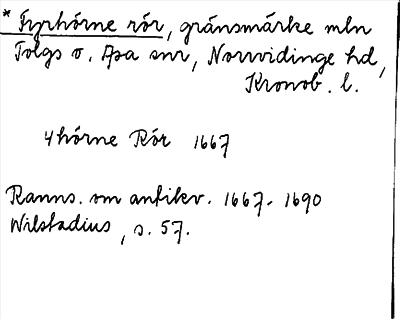 * Fyrhörne rör, gränsmärke mln
Tolgs o. Asa snr, Norrvidinge hd,
Kronob. l.
4hörne Rör 1667
Ranns. om antikv. 1667-1690
Wilstadius, s. 57.